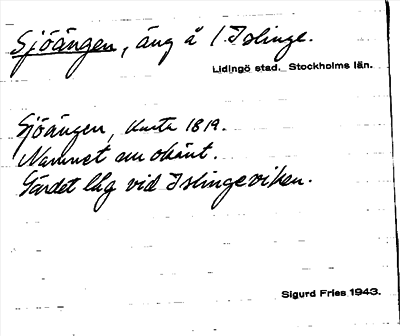 Sjöängen, äng å l. Islinge.
Lidingö stad. Stockholms län.
Sjöängen, Karta 1819.
Namnet nu okänt.
Gärdet låg vid Islingeviken.
Sigurd Fries 1943.